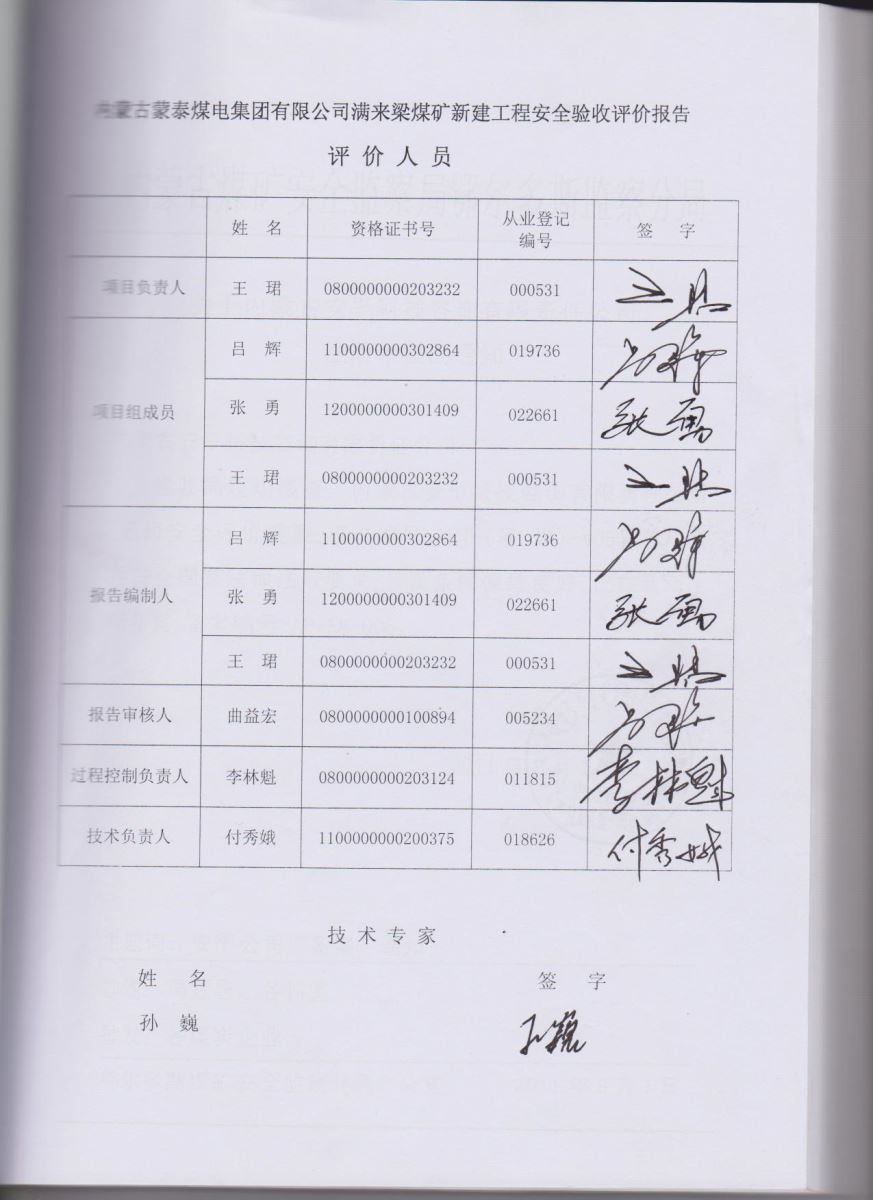 内蒙古蒙泰煤电集团有限公司满来梁煤矿新建工程安全验收评价报告
评价人员
姓 名 资格证书号 从业登记编号 签 字
项目负责人 王 珺 0800000000203232 000531 王珺
项目组成员 吕 辉 1100000000302864 019736 吕辉
张 勇 1200000000301409 022661 张勇
王 珺 0800000000203232 000531 王珺
报告编制人 吕 辉 1100000000302864 019736 吕辉
张 勇 1200000000301409 022661 张勇
王 珺 0800000000203232 000531 王珺
报告审核人 曲益宏 0800000000100894 005234
过程控制负责人 李林魁 0800000000203124 011815 李林魁
技术负责人 付秀娥 1100000000200375 018626 付秀娥
技术专家
姓 名 签 字
孙 巍 孙巍